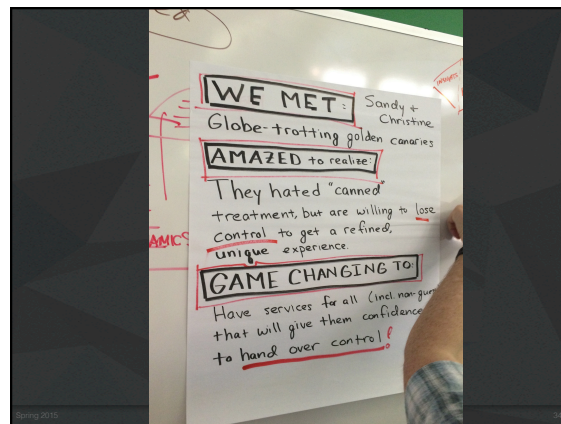 WE MET:
Sandy +
Christine
Globe-trotting golden canaries
AMAZED to realize:
They hated "canned"
treatment, but are willing to lose
control to get a refined,
unique experience.
GAME CHANGING TO:
Have services for all (incl. non-
that will give them confidence
to hand over control!
INSIGHTS
AMICS
Spring 2015
34